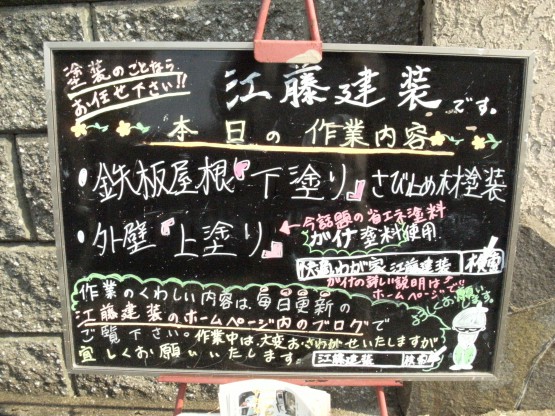 塗装のことなら
お任せ下さい!!
江藤建装です。
本日の作業内容
・鉄板屋根『下塗り』さび止め材塗装
・外壁『上塗り』
←今話題の省エネ塗料
ガイナ塗料使用
快適わが家 江藤建装 検索
ガイナの詳しい説明は
ホームページで!!
作業のくわしい内容は、毎日更新の
江藤建装のホームページ内のブログで
ご覧下さい。作業中は大変おさわがせいたしますが
宜しくお願いいたします。
江藤建装
よろしくお願いします。